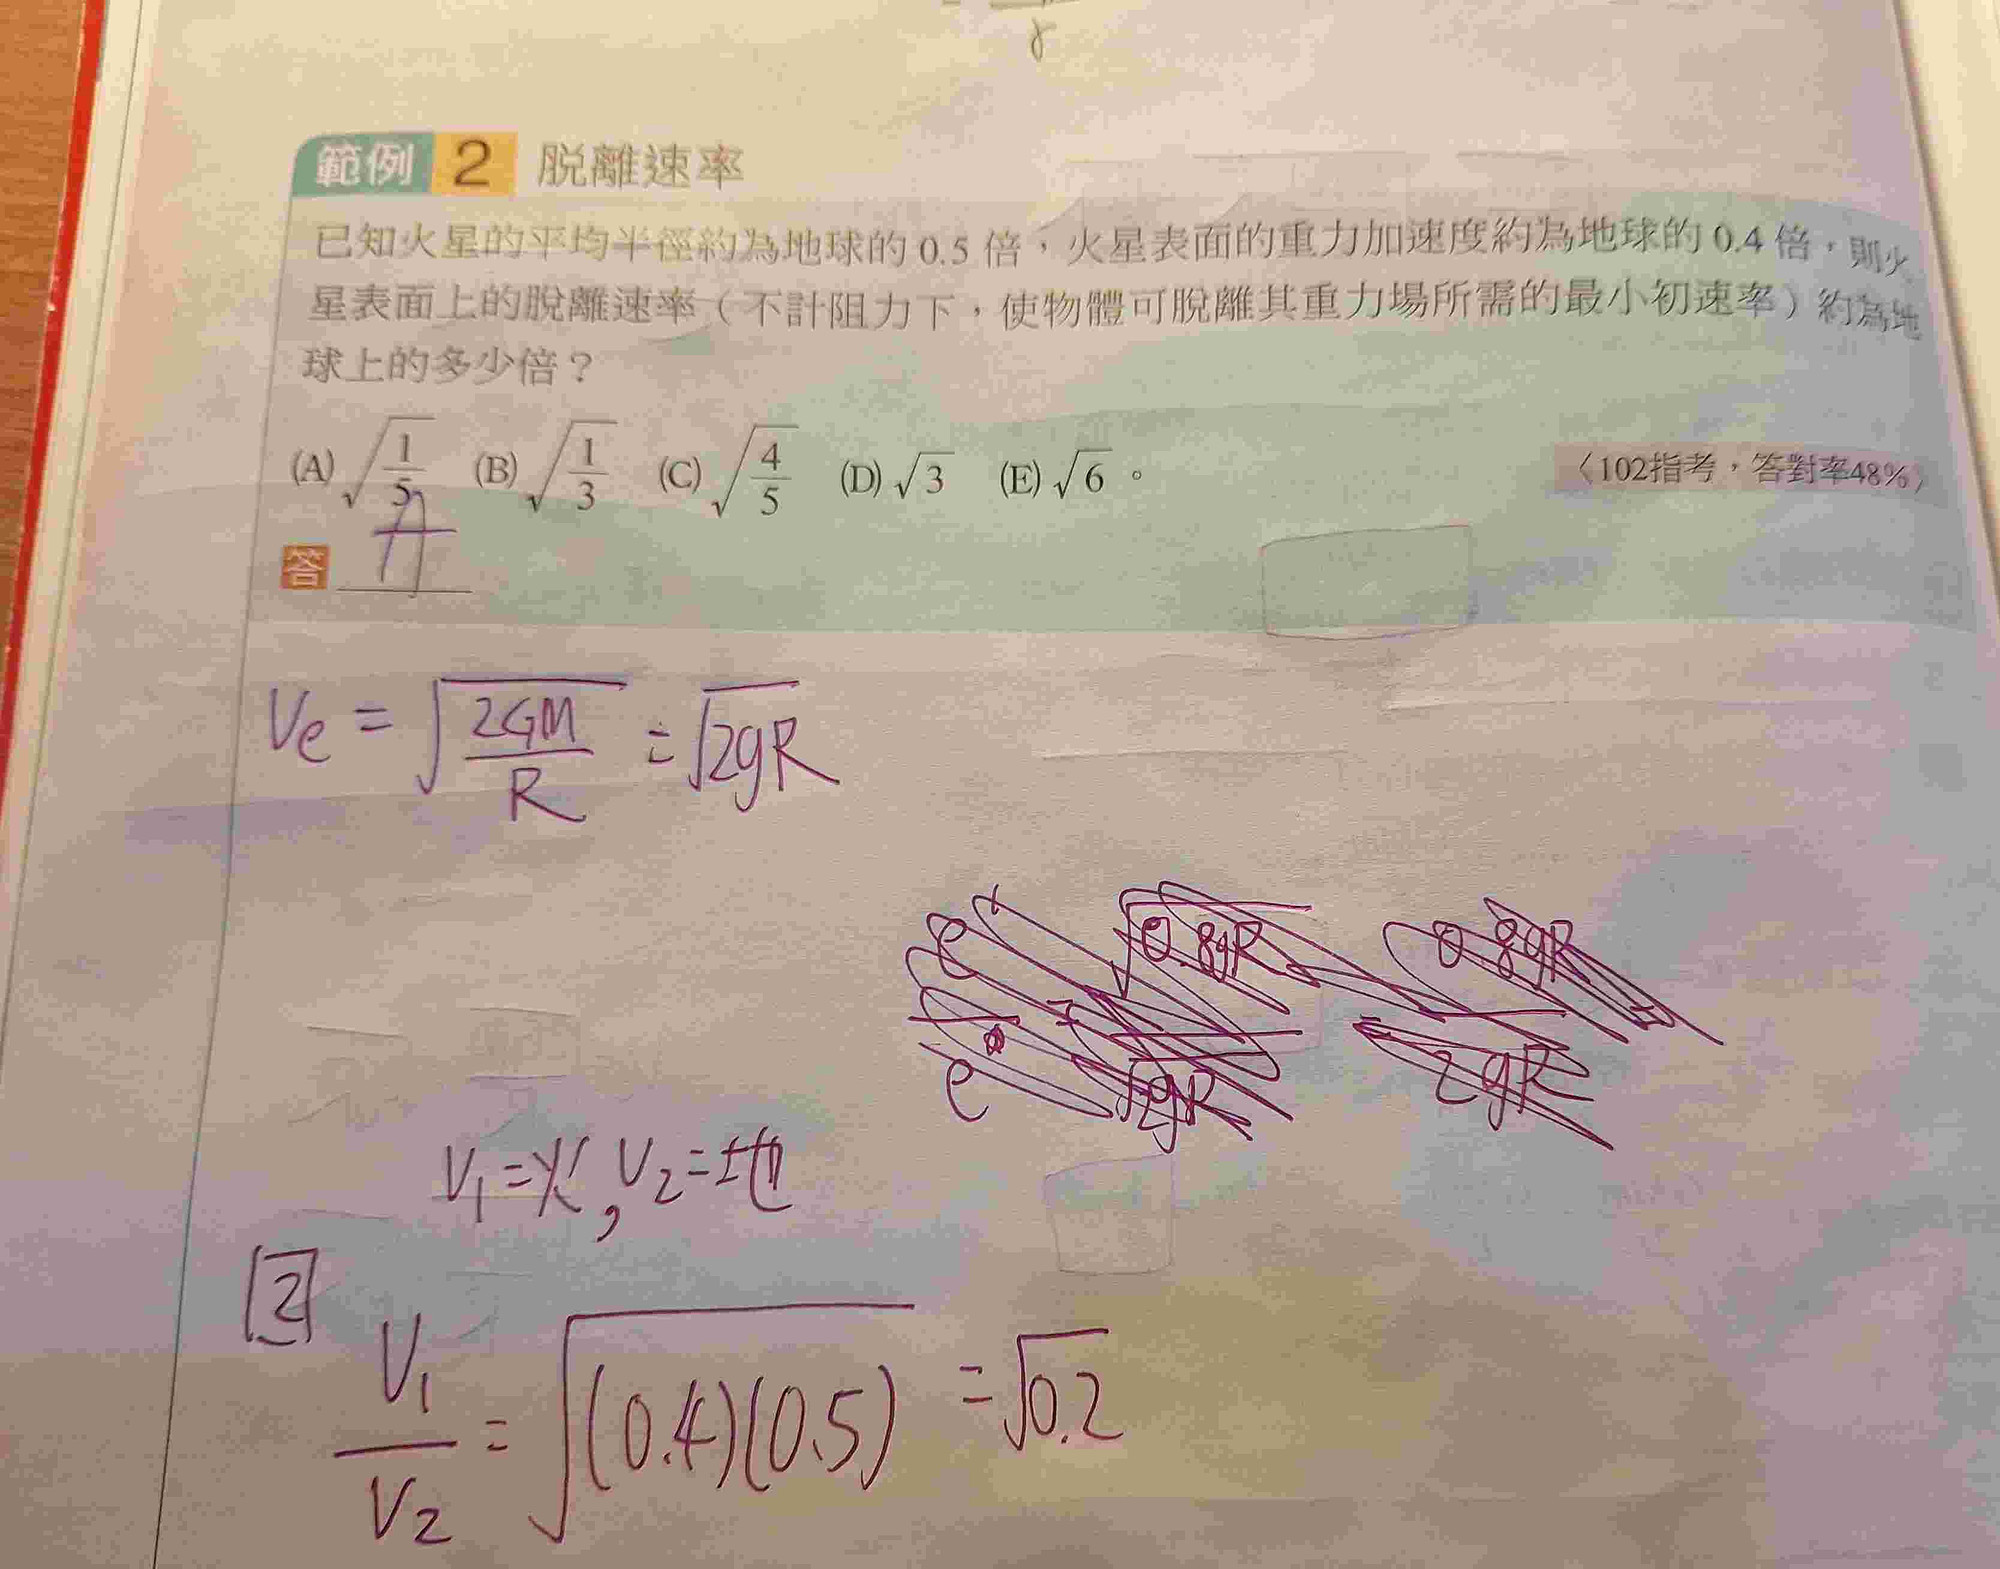 γ
範例 2 脱離速率
已知火星的平均半徑約為地球的 0.5 倍，火星表面的重力加速度約為地球的 0.4 倍，則火
星表面上的脫離速率（不計阻力下，使物體可脫離其重力場所需的最小初速率）約為地
球上的多少倍？
(A) √(1/5) (B) √(1/3) (C) √(4/5) (D) √3 (E) √6 。
〈102指考，答對率48%〉
答 A
Ve = √(2GM/R) = √2gR
V₁=火, V₂=地
2
V₁/V₂ = √(0.4)(0.5) = √0.2